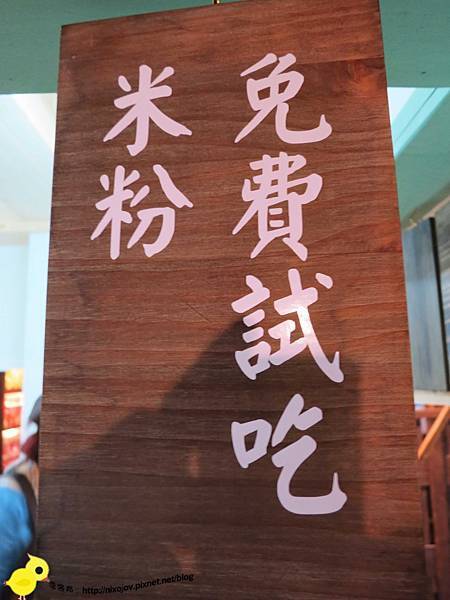 免費試吃
米粉
http://nixojov.pixnet.net/blog